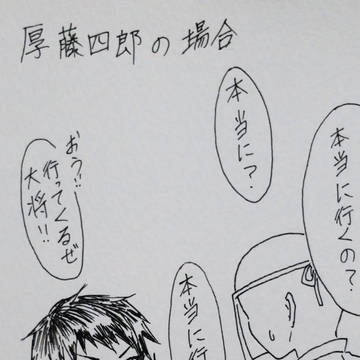 厚藤四郎の場合
本当に行くの?
本当に?
本当に行
おう!!
行ってくるぜ
大将!!